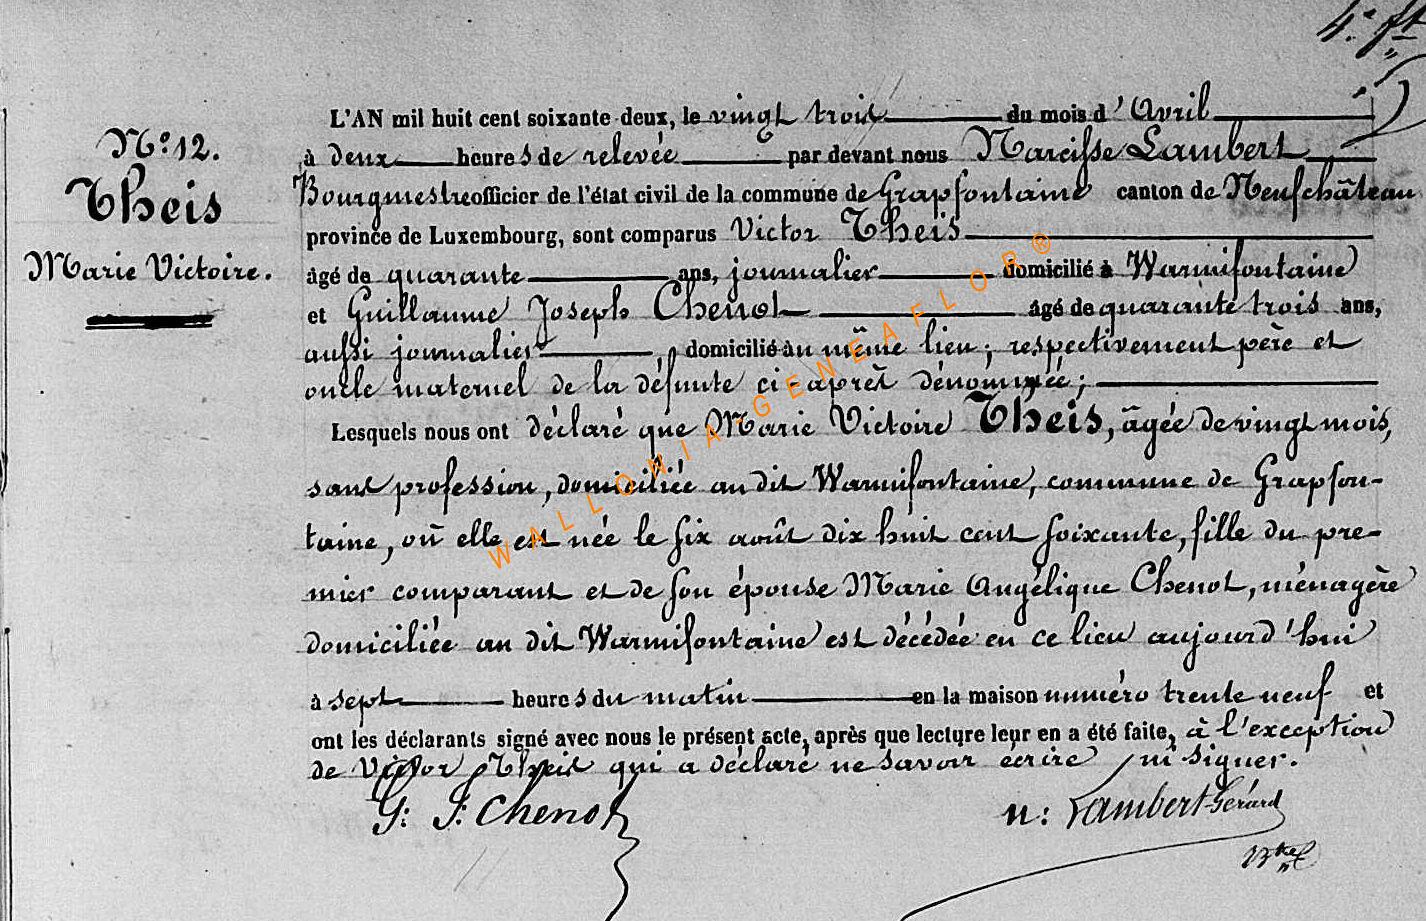 4e ft
N° 12.
Theis
Marie Victoire.
L'AN mil huit cent soixante deux, le vingt trois du mois d'Avril
à deux heures de relevée par devant nous Narcisse Lambert
Bourgmestre officier de l'état civil de la commune de Grapfontaine canton de Neufchâteau
province de Luxembourg, sont comparus Victor Theis
âgé de quarante ans, journalier domicilié à Warmifontaine
et Guillaume Joseph Chenot âgé de quarante trois ans,
aussi journalier domicilié au même lieu; respectivement père et
oncle maternel de la défunte ci-après dénommée;
Lesquels nous ont déclaré que Marie Victoire Theis, âgée de vingt mois,
sans profession, domiciliée au dit Warmifontaine, commune de Grapfon-
taine, où elle est née le six août dix huit cent soixante, fille du pre-
mier comparant et de son épouse Marie Angélique Chenot, ménagère
domiciliée au dit Warmifontaine est décédée en ce lieu aujourd'hui
à sept heures du matin en la maison numéro trente neuf et
ont les déclarants signé avec nous le présent acte, après que lecture leur en a été faite, à l'exception
de Victor Theis qui a déclaré ne savoir écrire ni signer.
G: J: Chenot
N: Lambert Gérard
Btre
WALLONIA-GENEAFLOR®